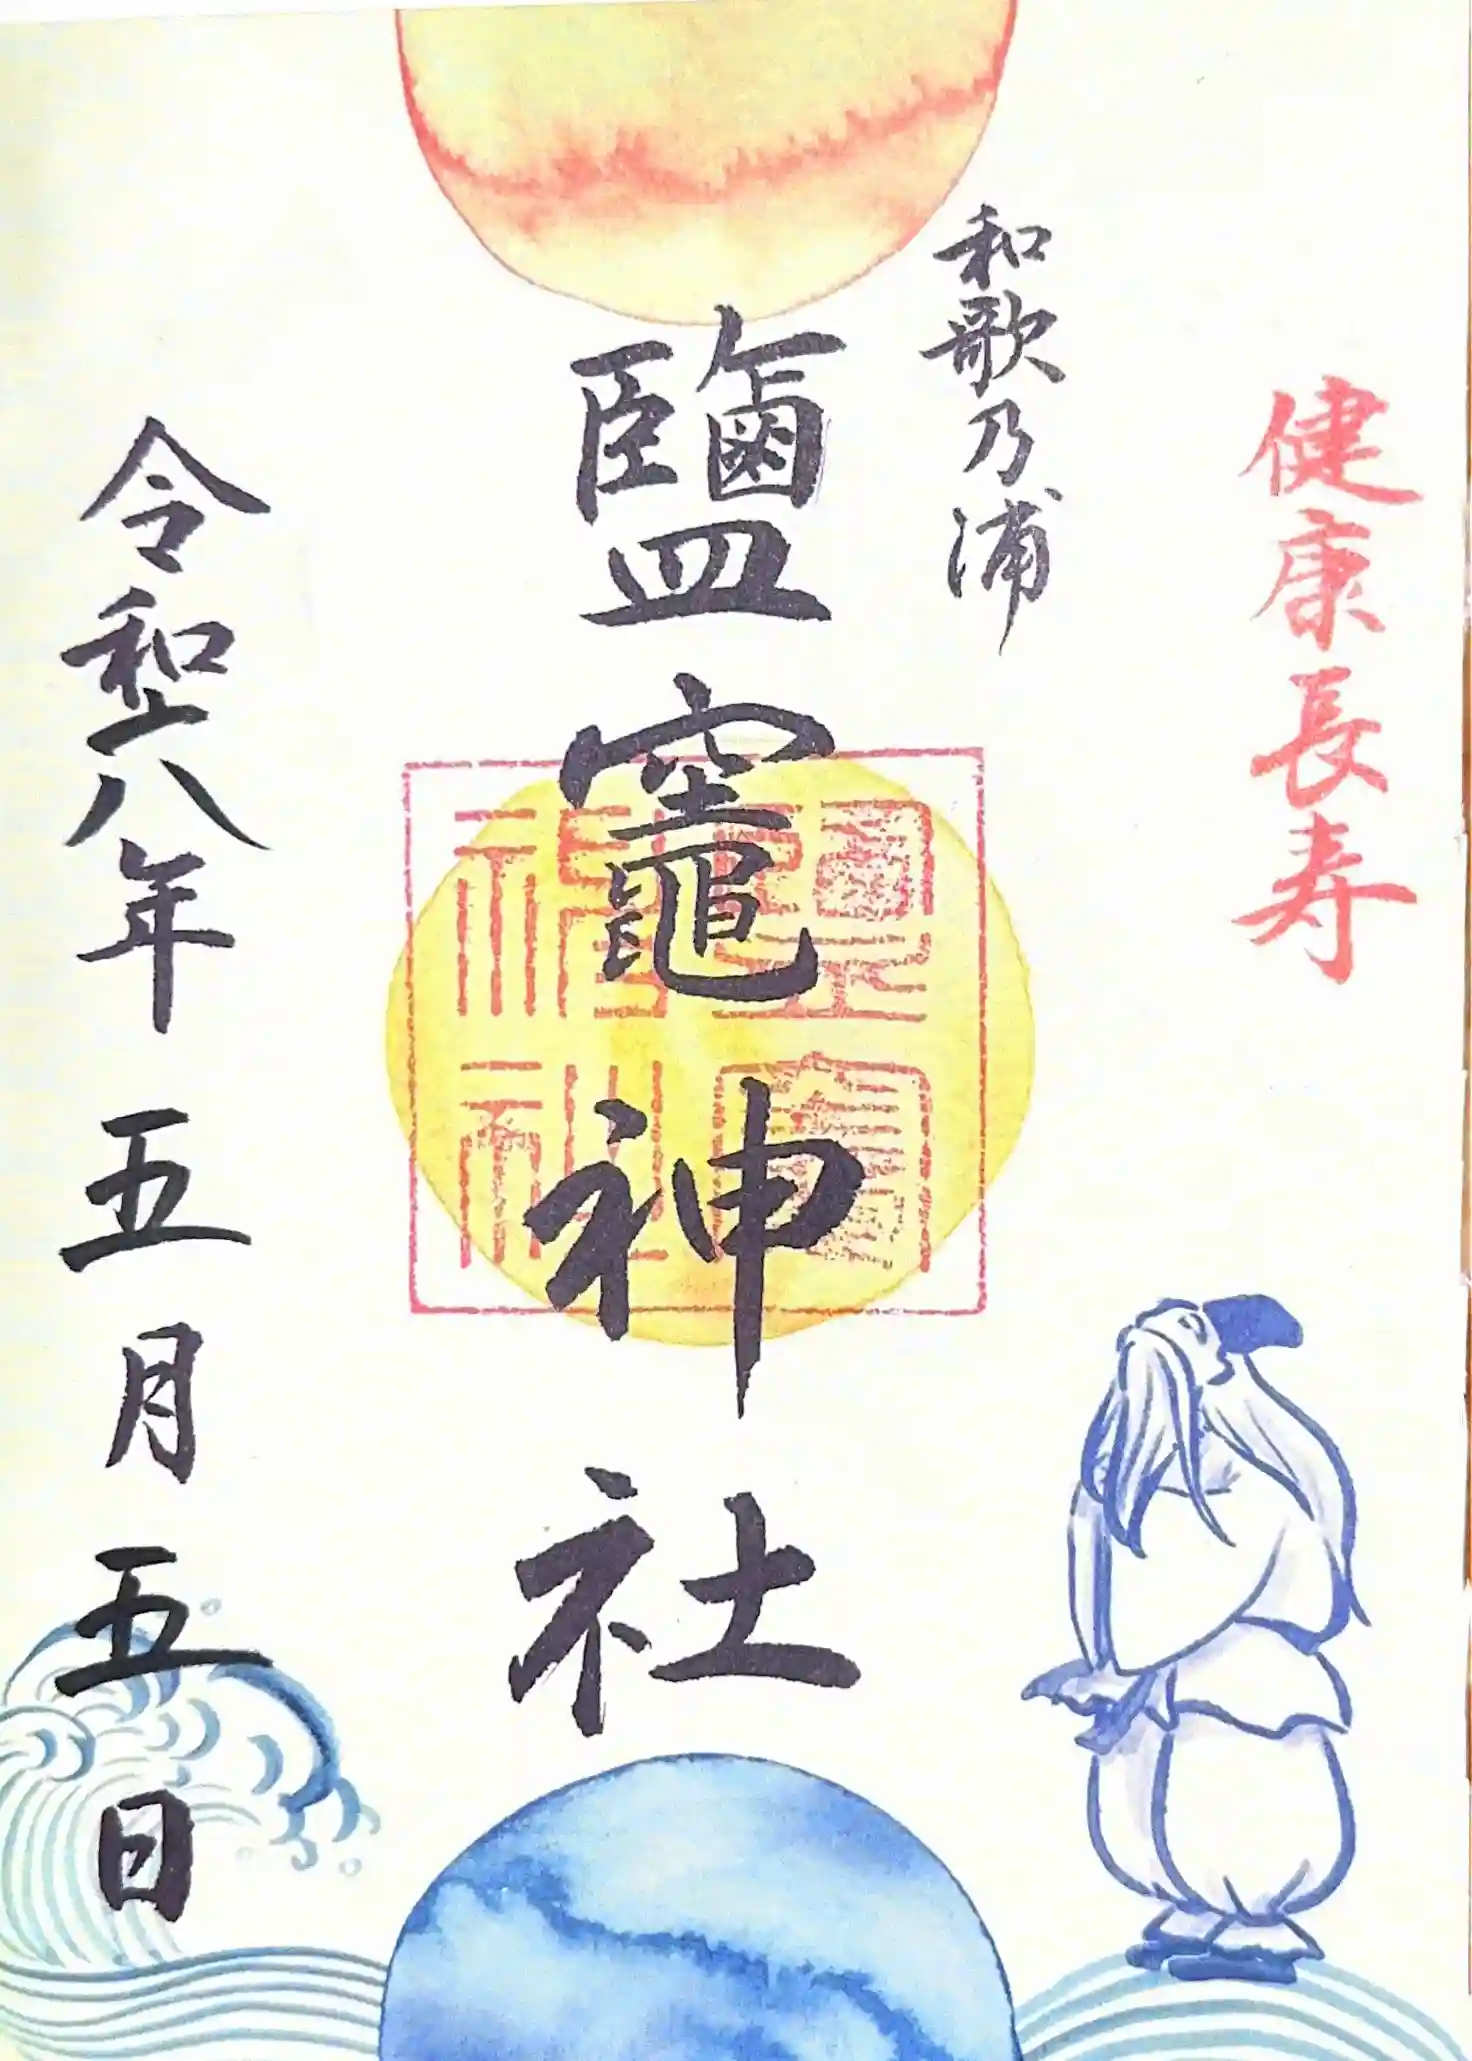 健康長寿
和歌乃浦
鹽竈神社
鹽竈神社
令和八年五月五日